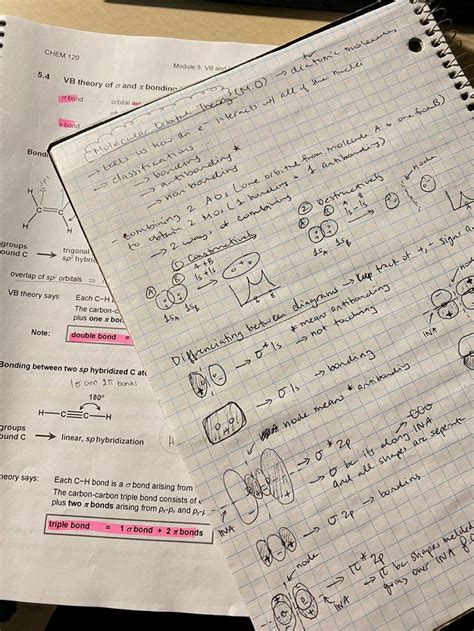 CHEM 120
Module 5: VB and
5.4 VB theory of σ and π bonding
σ bond - orbital
π bond
Bond
H
H
H
C=C
groups
ound C → trigonal
sp² hybri
overlap of sp² orbitals ⇒
VB theory says: Each C–H
The carbon-c
plus one π bon
Note: double bond =
Bonding between two sp hybridized C ato
1σ and 2π bonds
180°
H—C≡C—H
groups
ound C → linear, sp hybridization
heory says: Each C–H bond is a σ bond arising from
The carbon-carbon triple bond consists of
plus two π bonds arising from pₓ-pₓ and pᵧ-p
triple bond = 1 σ bond + 2 π bonds
Molecular Orbital Theory (MO) → diatomic molecules
→ tells us how an e⁻ interacts w/ all of the nuclei
→ classifications...
→ bonding
→ antibonding *
→ non bonding
- Combining 2 AOs (one orbital from molecule A + one from B)
to obtain 2 MOs (1 bonding + 1 antibonding)
→ 2 ways of combining
① Constructively
A + B
1s + 1s
A
B
1sA 1sB
② Destructively
A B
1s 1s
1sA 1sB
node
Differentiating between diagrams → keep track of +, - signs
→ σ*1s * mean antibonding
→ not touching
→ σ1s → bonding
node means * antibonding
→ σ*2p
→ σ bc its along INA
and all shapes are seperate
INA
→ σ2p → bonding
node
→ π*2p
→ π bc shapes melded
going over INA
INA
INA